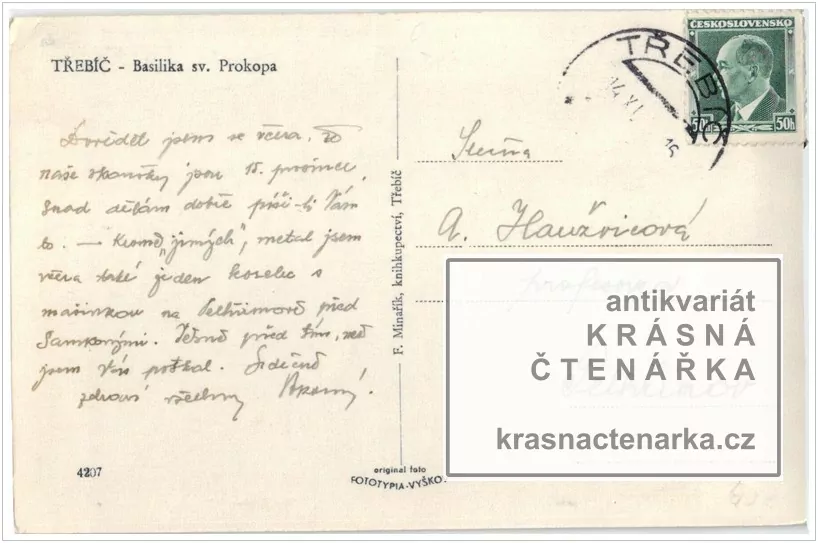 TŘEBÍČ - Basilika sv. Prokopa
Dověděl jsem se včera, že
naše zkoušky jsou 15. prosince,
snad dělám dobře píši-li Vám
to. — Kromě "jiných", metal jsem
včera také jeden kozelec s
mašinkou na Pelhřimově před
. Těsně před tím, než
jsem Vás potkal. Srdečně
zdraví všechny
4207
F. Minařík, knihkupectví, Třebíč
original foto
FOTOTYPIA-VYŠKO
ČESKOSLOVENSKO
50h 50h
TŘEBÍČ
14 XI
Slečna
A. Hauživicová
antikvariát
KRÁSNÁ
ČTENÁŘKA
krasnactenarka.cz